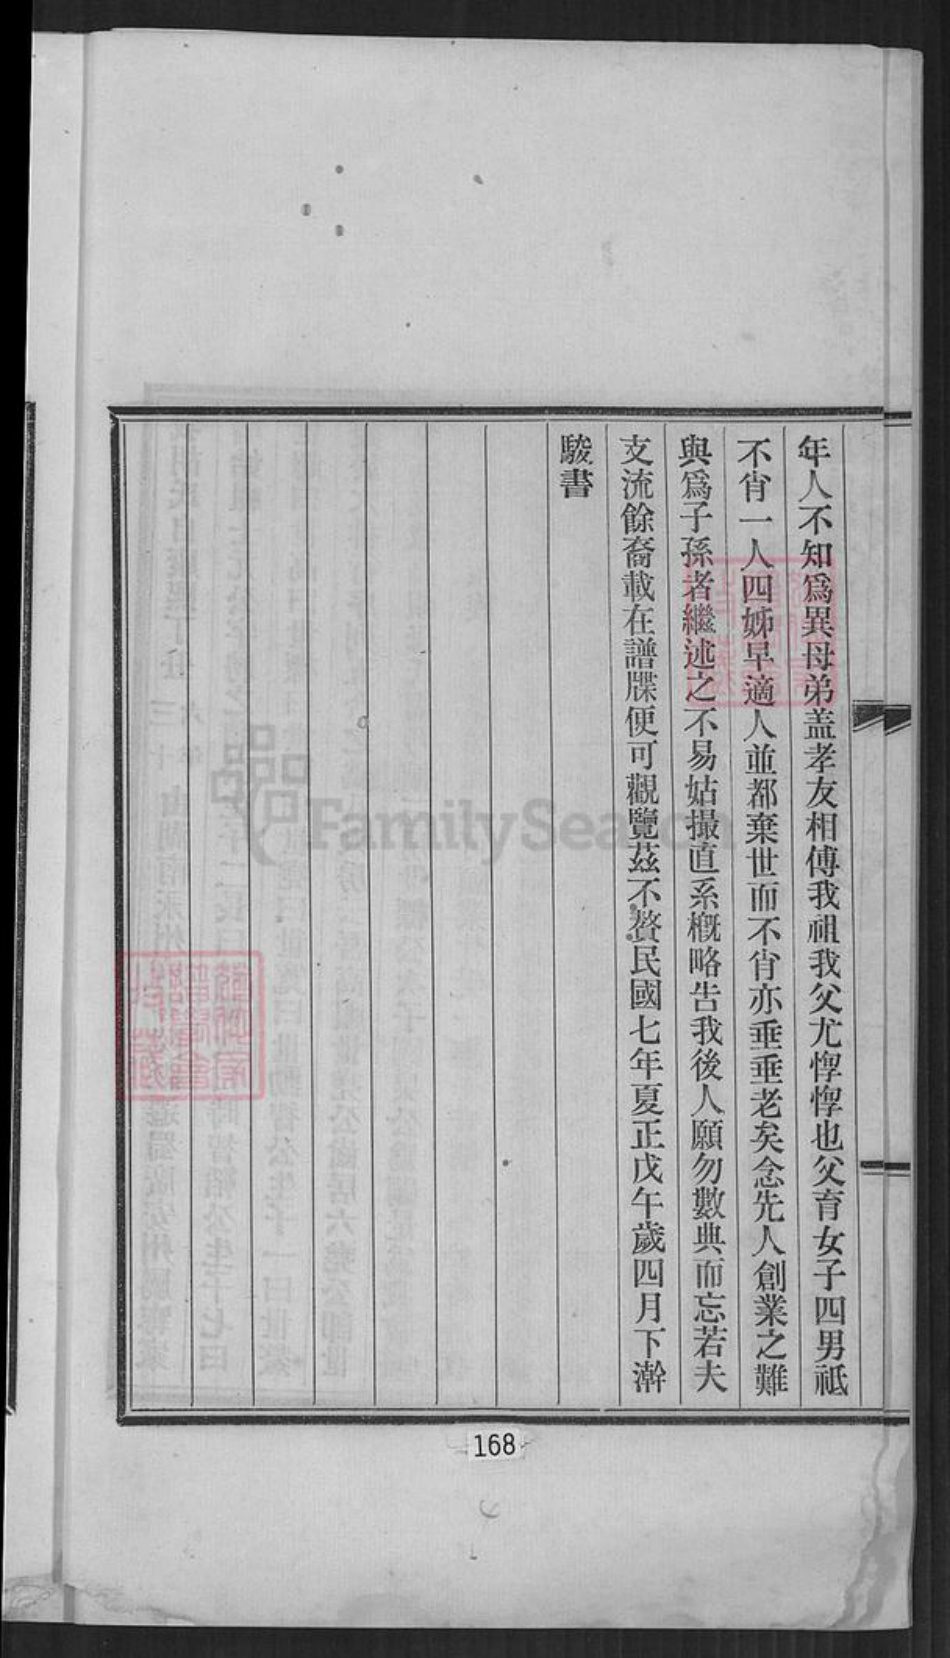 年人不知爲異母弟盖孝友相傅我祖我父尤惸惸也父育女子四男祗
不肖一人四姊早適人並都棄世而不肖亦垂垂老矣念先人創業之難
與爲子孫者繼述之不易姑撮直系槪略告我後人願勿數典而忘若夫
支流餘裔載在譜牒便可觀覽茲不贅民國七年夏正戊午歲四月下澣
駿書
168
FamilySearch